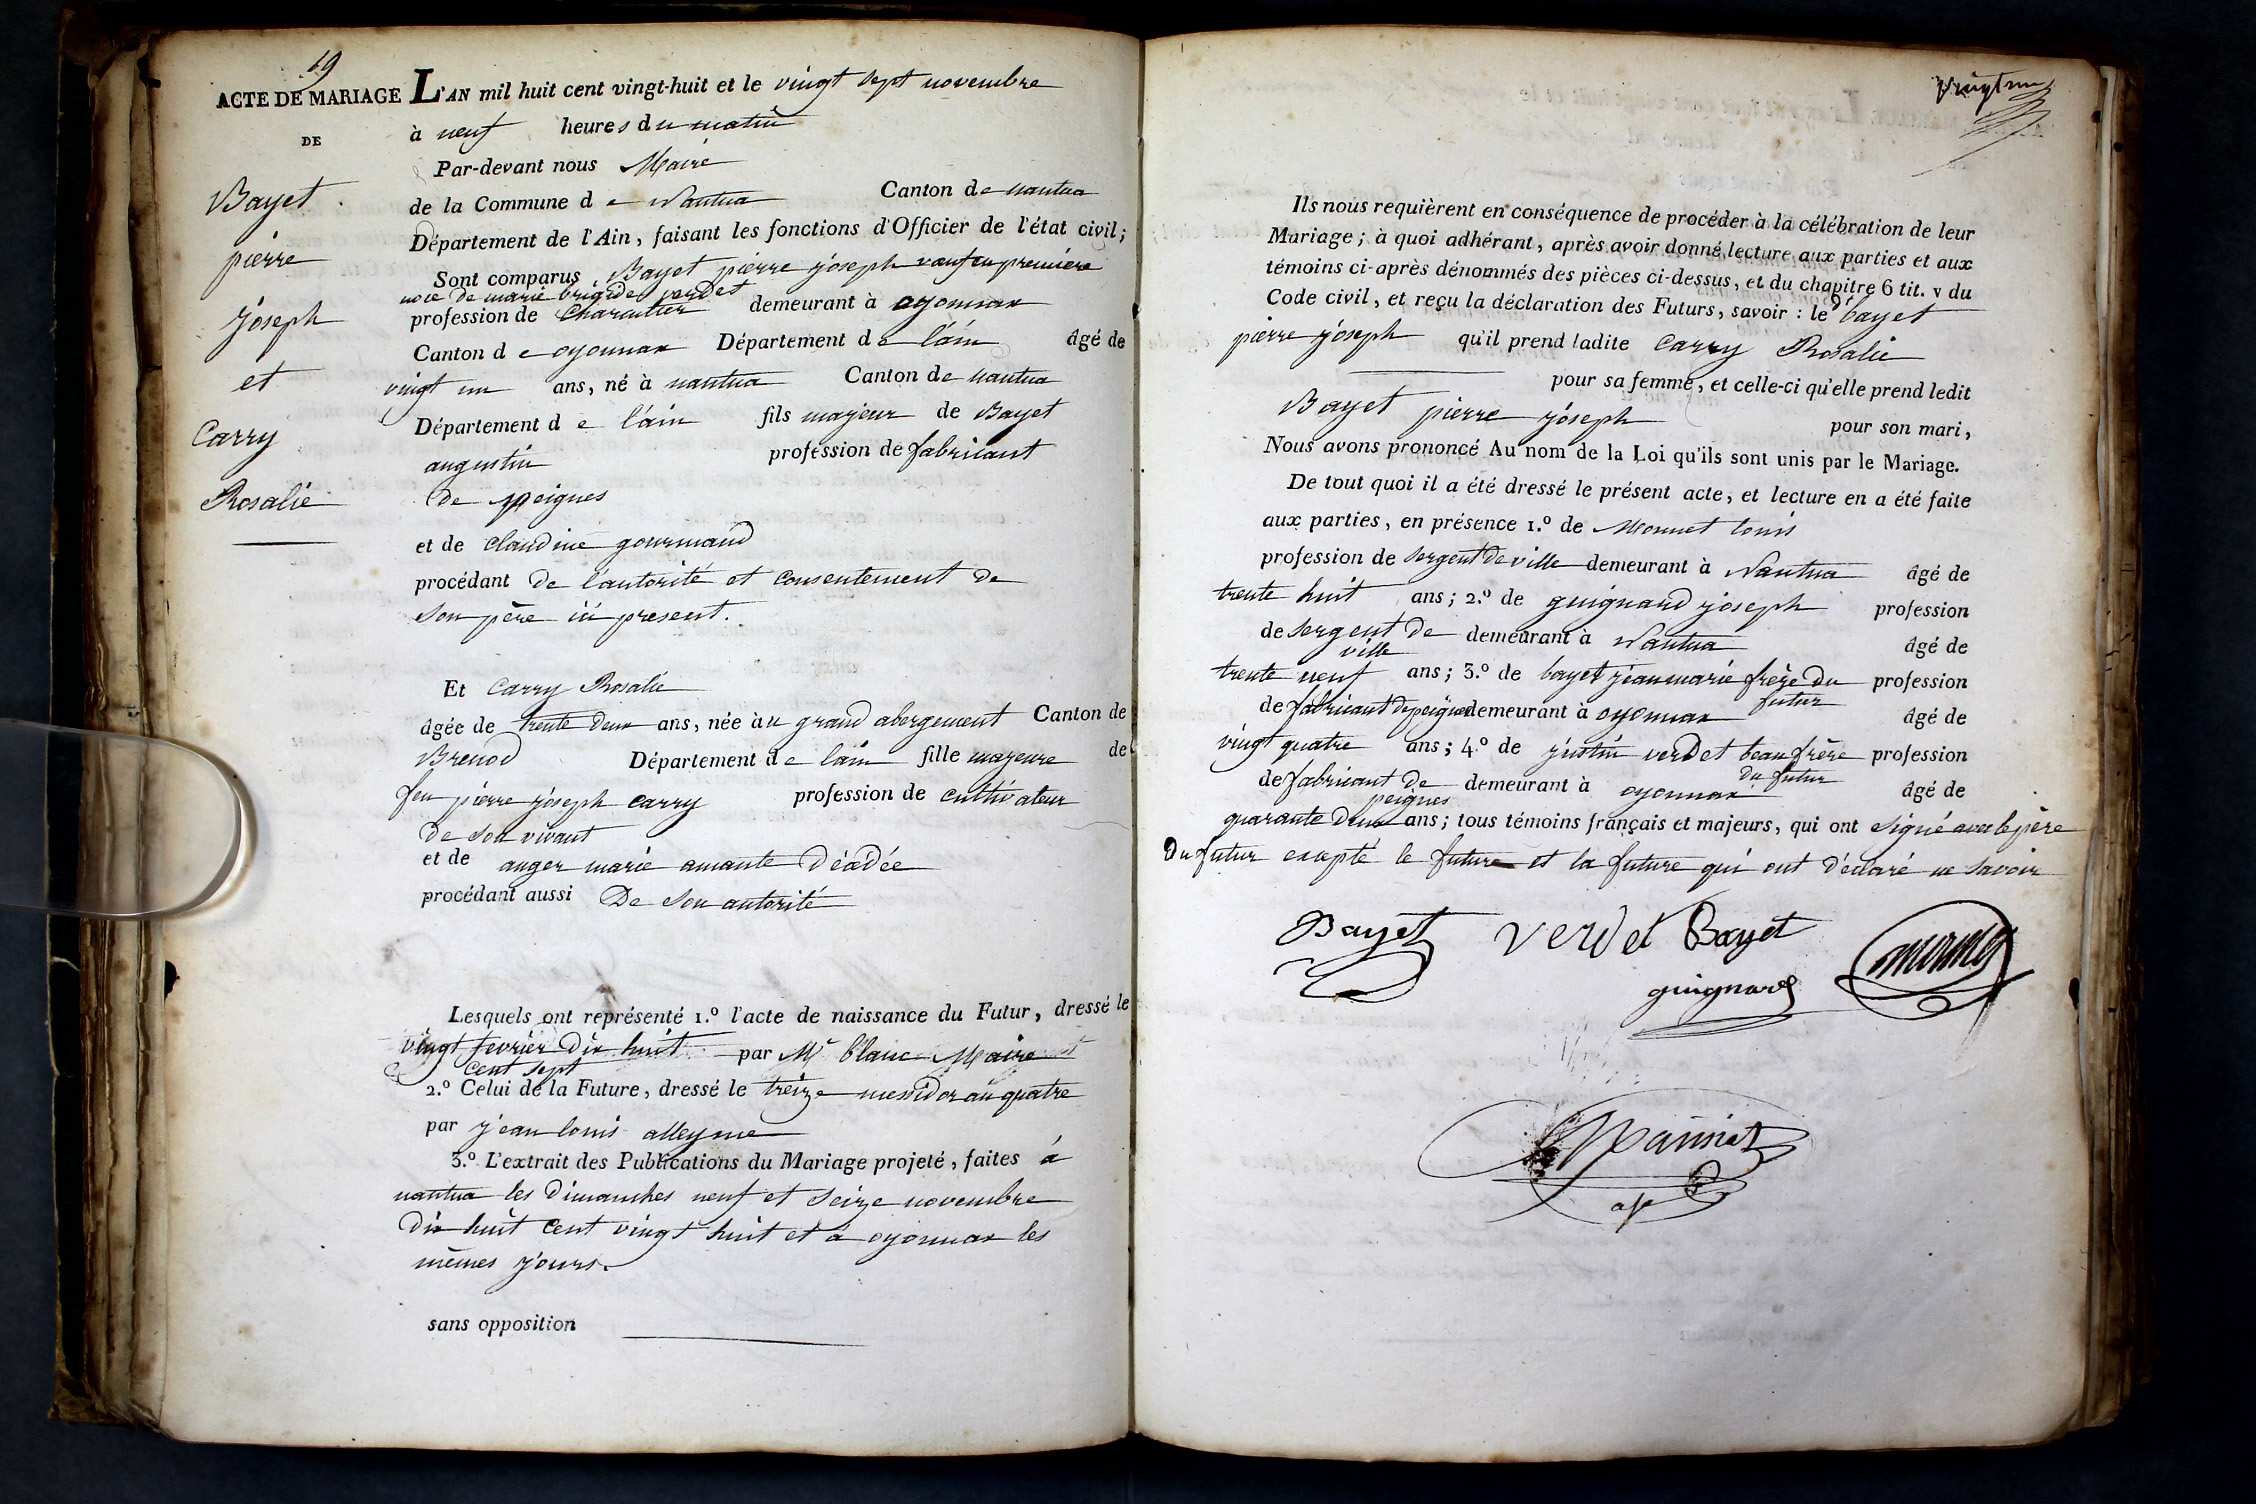 19
ACTE DE MARIAGE
DE
Bayet
pierre
joseph
et
Carry
Rosalie
L'AN mil huit cent vingt-huit et le vingt sept novembre
à neuf heures du matin
Par-devant nous Maire
de la Commune de Nantua Canton de nantua
Département de l'Ain, faisant les fonctions d'Officier de l'état civil;
Sont comparus Bayet pierre joseph veuf en première
noce de marie brigide verdet
profession de Charcutier demeurant à oyonnax
Canton de oyonnax Département de l'ain âgé de
vingt un ans, né à nantua Canton de nantua
Département de l'ain fils majeur de Bayet
augustin profession de fabricant
de peignes
et de Claudine gourmand
procédant de l'autorité et consentement de
son père ici present.
Et Carry Rosalie
âgée de trente deux ans, née au grand abergement Canton de
Brenod Département de lain fille majeure de
feu pierre joseph carry profession de cultivateur
de son vivant
et de anger marie amante décédée
procédant aussi De son autorité
Lesquels ont représenté 1.º l'acte de naissance du Futur, dressé le
vingt fevrier dix huit par Mr blanc Maire
cent sept
2.º Celui de la Future, dressé le treize messidor an quatre
par jean louis alleyme
3.º L'extrait des Publications du Mariage projeté, faites à
nantua les dimanches neuf et seize novembre
dix huit cent vingt huit et à oyonnax les
mêmes jours.
sans opposition
Ils nous requièrent en conséquence de procéder à la célébration de leur
Mariage; à quoi adhérant, après avoir donné lecture aux parties et aux
témoins ci-après dénommés des pièces ci-dessus, et du chapitre 6 tit. v du
Code civil, et reçu la déclaration des Futurs, savoir : le bayet
pierre joseph qu'il prend ladite Carry Rosalie
pour sa femme, et celle-ci qu'elle prend ledit
Bayet pierre joseph pour son mari,
Nous avons prononcé Au nom de la Loi qu'ils sont unis par le Mariage.
De tout quoi il a été dressé le présent acte, et lecture en a été faite
aux parties, en présence 1.º de Monnet louis
profession de sergent de ville demeurant à Nantua âgé de
trente huit ans; 2.º de guignard joseph profession
de sergent de demeurant à Nantua âgé de
ville
trente neuf ans; 3.º de bayet jean marie frère du profession
futur
de fabricant de peignes demeurant à oyonnax âgé de
vingt quatre ans; 4.º de justin verdet beau frère profession
du futur
de fabricant de demeurant à oyonnax âgé de
peignes
quarante deux ans; tous témoins français et majeurs, qui ont signé avec le père
du futur exepté le future et la future qui ont déclaré ne savoir
Bayet Verdet Bayet
guignard